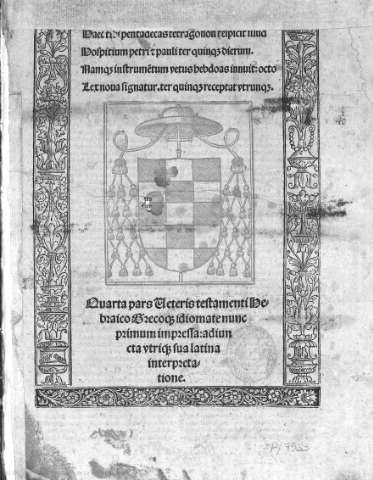 Haec tibi pentadecas tetragonon respicit illud
Hospitium petri & pauli ter quinqꝫ dierum.
Namqꝫ instrumẽtum vetus hebdoas innuit: octo
Lex noua signatur. ter quinqꝫ receptat vtrunqꝫ.
Quarta pars Ueteris testamenti He-
braico Grecoqꝫ idiomate nunc
primum impressa: adiun
cta vtriqꝫ sua latina
interpreta-
tione.